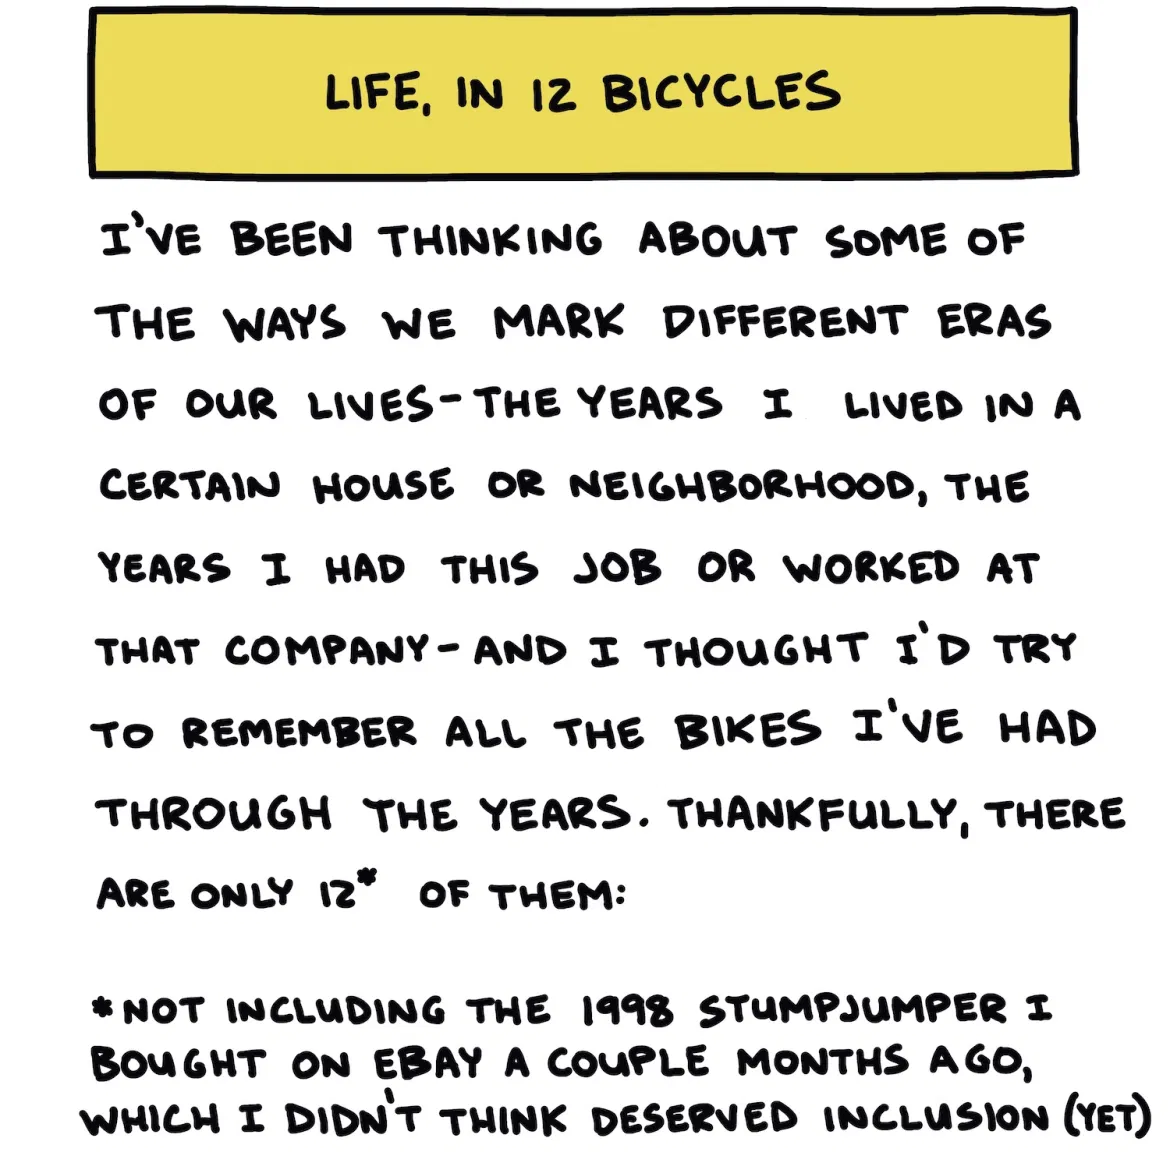 LIFE, IN 12 BICYCLES
I'VE BEEN THINKING ABOUT SOME OF
THE WAYS WE MARK DIFFERENT ERAS
OF OUR LIVES-THE YEARS I LIVED IN A
CERTAIN HOUSE OR NEIGHBORHOOD, THE
YEARS I HAD THIS JOB OR WORKED AT
THAT COMPANY-AND I THOUGHT I'D TRY
TO REMEMBER ALL THE BIKES I'VE HAD
THROUGH THE YEARS. THANKFULLY, THERE
ARE ONLY 12* OF THEM:
*NOT INCLUDING THE 1998 STUMPJUMPER I
BOUGHT ON EBAY A COUPLE MONTHS AGO,
WHICH I DIDN'T THINK DESERVED INCLUSION (YET)